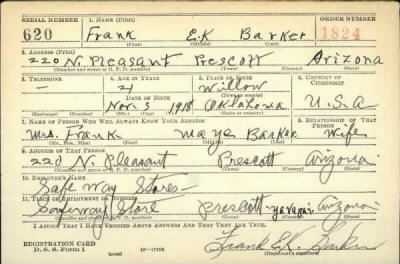 SERIAL NUMBER 1. NAME (Print) ORDER NUMBER
620 Frank E.K Barker 1824
(First) (Middle) (Last)
2. ADDRESS (Print)
220 N. Pleasant Prescott Arizona
(Number and street or R. F. D. number) (Town) (County) (State)
3. TELEPHONE 4. AGE IN YEARS 5. PLACE OF BIRTH 6. COUNTRY OF CITIZENSHIP
— 21 Willow
(Town or county)
DATE OF BIRTH
Nov. 3 1918 Oklahoma U.S.A
(Exchange) (Number) (Mo.) (Day) (Yr.) (State or country)
7. NAME OF PERSON WHO WILL ALWAYS KNOW YOUR ADDRESS 8. RELATIONSHIP OF THAT PERSON
Mrs. Frank Maye Barker Wife
(Mr., Mrs., Miss) (First) (Middle) (Last)
9. ADDRESS OF THAT PERSON
220 N. Pleasant Prescott Arizona
(Number and street or R. F. D. number) (Town) (County) (State)
10. EMPLOYER'S NAME
Safe way Stores—
11. PLACE OF EMPLOYMENT OR BUSINESS
Safeway Store Prescott - yavapai - Arizona
(Number and street or R. F. D. number) (Town) (County) (State)
I AFFIRM THAT I HAVE VERIFIED ABOVE ANSWERS AND THAT THEY ARE TRUE.
REGISTRATION CARD
D. S. S. Form 1 (over) Frank E.K. Barker
(Registrant's signature)